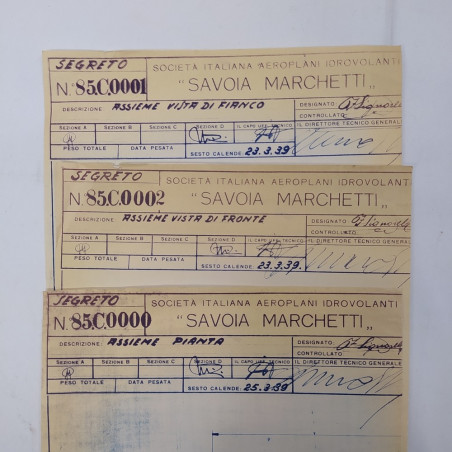 SEGRETO
SOCIETA ITALIANA AEROPLANI IDROVOLANTI
N. 85.C.0001 "SAVOIA MARCHETTI„
DESCRIZIONE: ASSIEME VISTA DI FIANCO
DESIGNATO
CONTROLLATO
SEZIONE A SEZIONE B SEZIONE C SEZIONE D IL CAPO UFF. TECNICO IL DIRETTORE TECNICO GENERALE
PESO TOTALE DATA PESATA SESTO CALENDE: 23.3.39
SEGRETO
SOCIETA ITALIANA AEROPLANI IDROVOLANTI
N. 85.C.0002 "SAVOIA MARCHETTI„
DESCRIZIONE: ASSIEME VISTA DI FRONTE
DESIGNATO
CONTROLLATO
SEZIONE A SEZIONE B SEZIONE C SEZIONE D IL CAPO UFF. TECNICO IL DIRETTORE TECNICO GENERALE
PESO TOTALE DATA PESATA SESTO CALENDE: 23.3.39
SEGRETO
SOCIETA ITALIANA AEROPLANI IDROVOLANTI
N. 85.C.0000 "SAVOIA MARCHETTI„
DESCRIZIONE: ASSIEME PIANTA
DESIGNATO
CONTROLLATO
SEZIONE A SEZIONE B SEZIONE C SEZIONE D IL CAPO UFF. TECNICO IL DIRETTORE TECNICO GENERALE
PESO TOTALE DATA PESATA SESTO CALENDE: 25.3.39